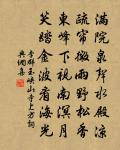 滿院泉聲水殿涼
疏簾微雨野松香
東峰下視南溟月
笑踏金波看海光
李群玉峽山寺上方詞